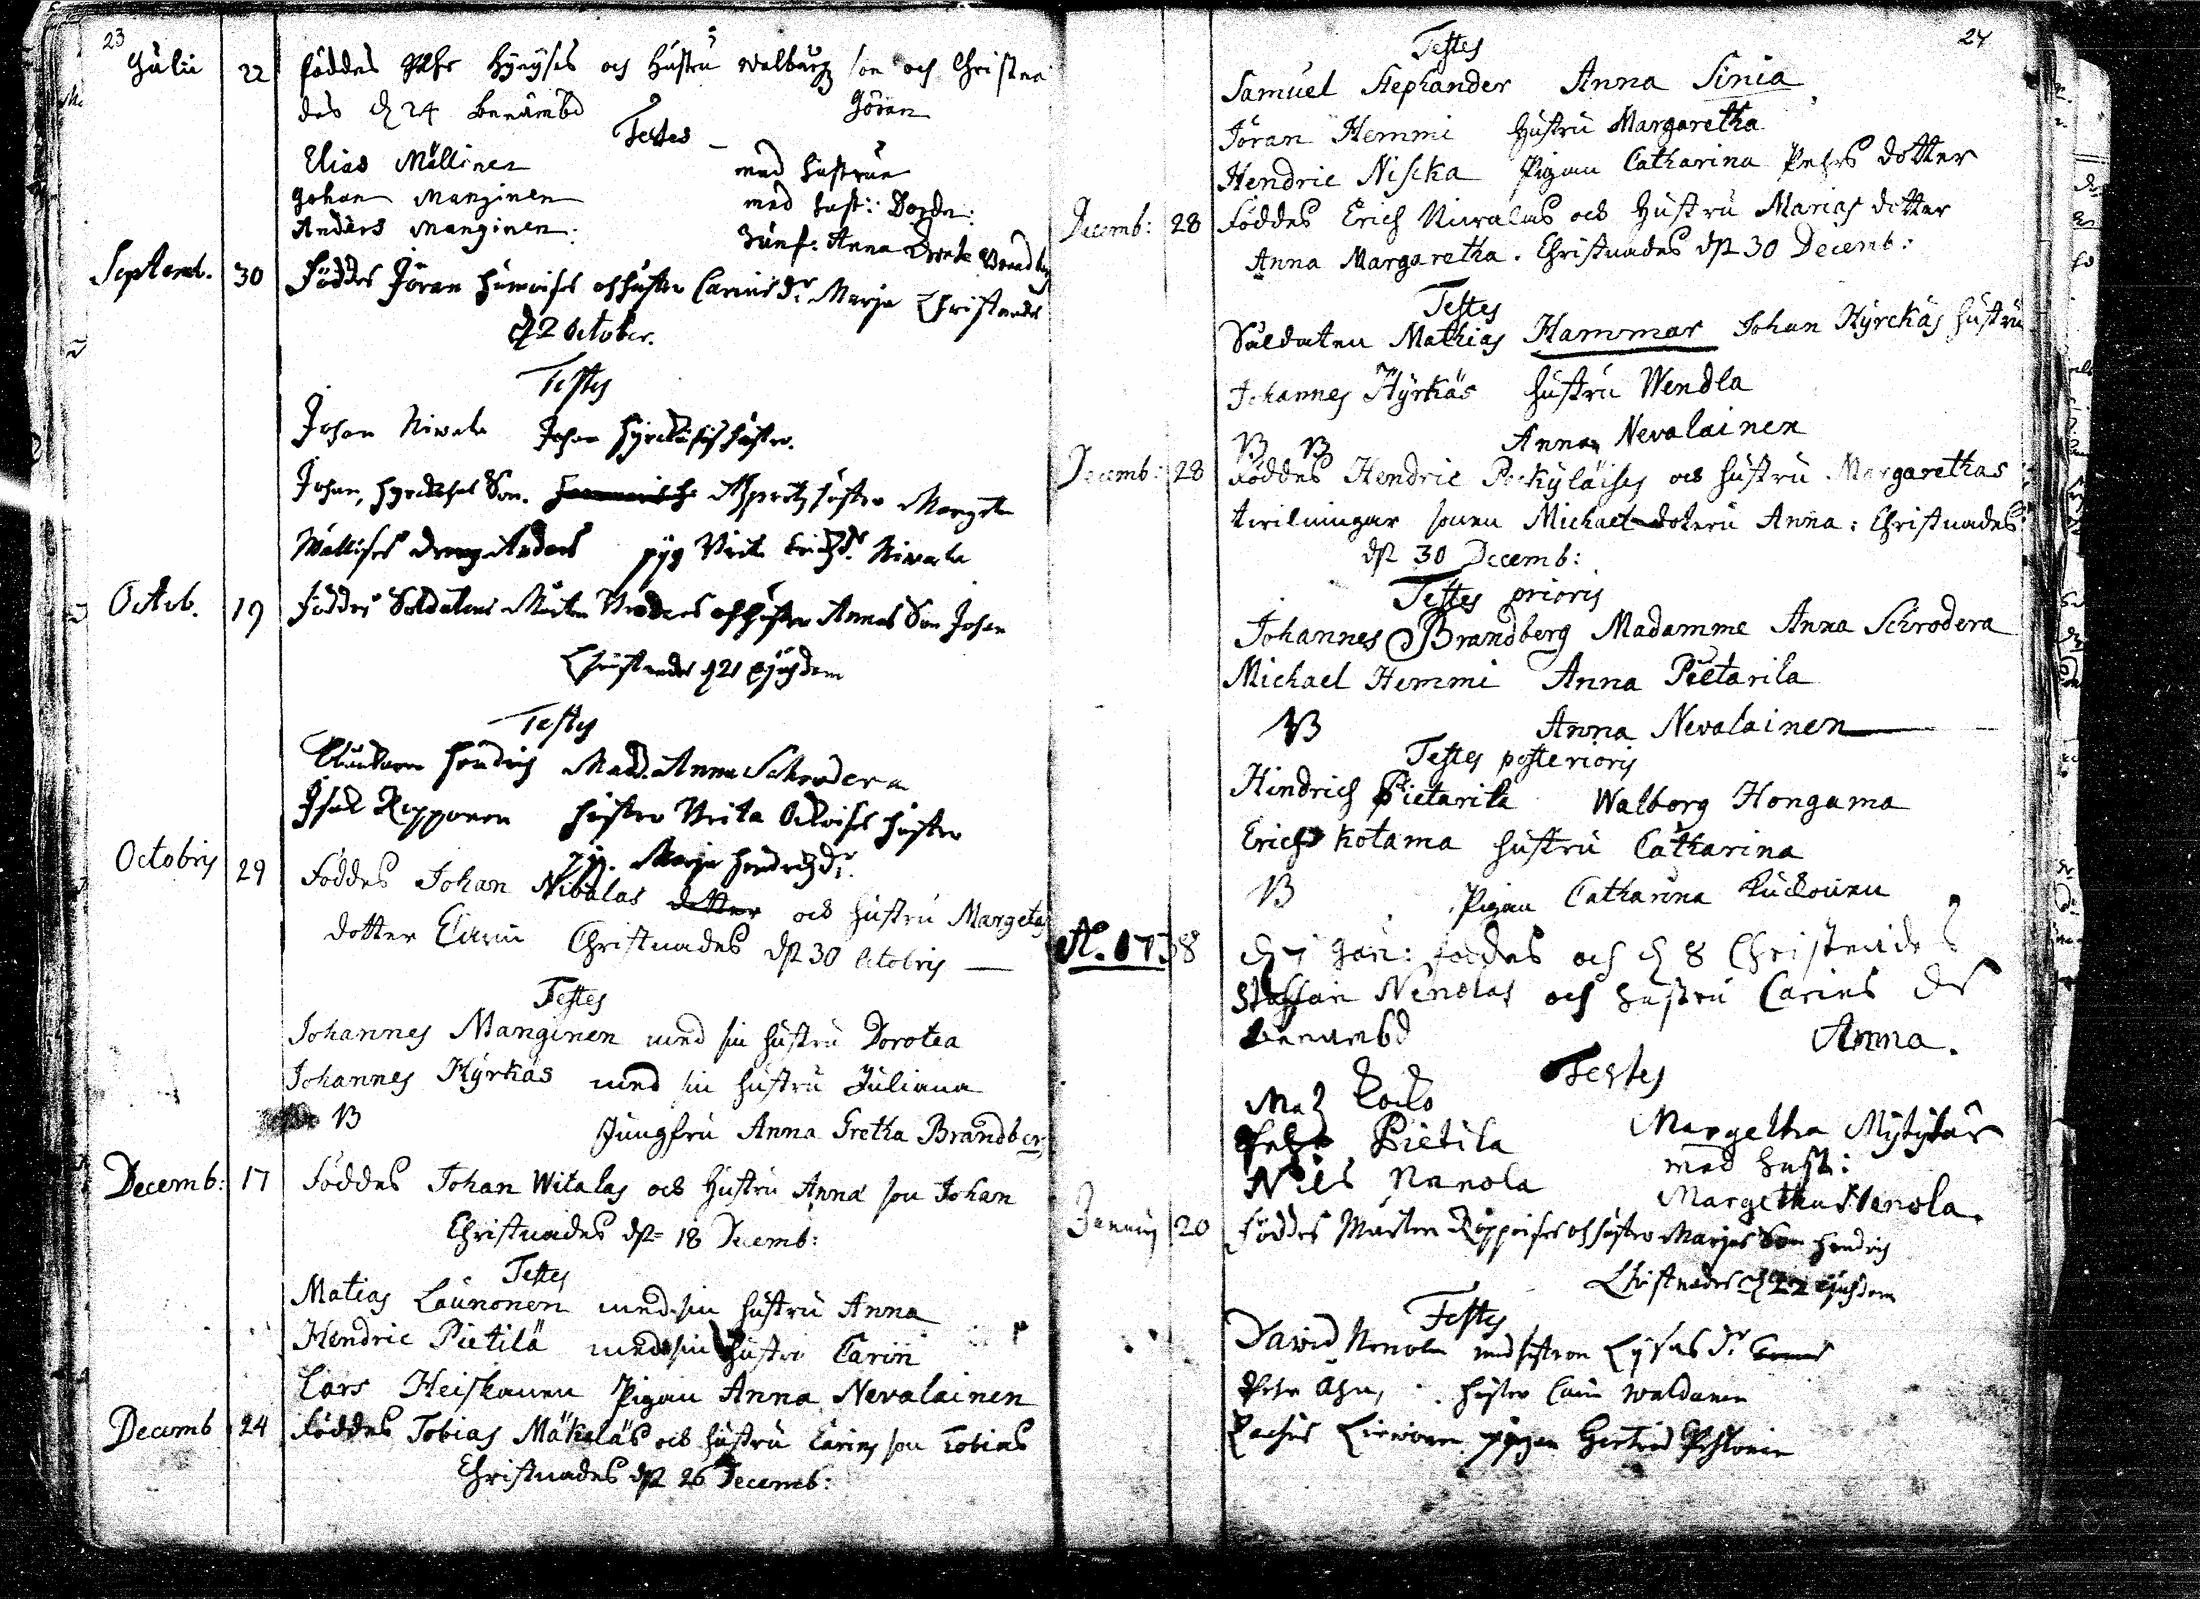 23
Julii 22 föddes Pehr Hyryses och hustru Walburg son och Christna
des d 24 benämbd Göran
Testes
Elias Mällinen med hustrun
Johan Manginen med hust: Dorde:
Anders Manginen: Junf: Anna Brandberg
Septemb. 30 Föddes Jöran och hustru Carins dr Marja Christnades
d 2 October.
Testes
Johan Niwala Johan Hyrckäises hustro.
Johan, Son. hustro Margeta
dreng Anders pig Brita Erichsdr Niwala
Octob. 19 Föddes Soldatens Mårten och hustro Annas Son Johan
Christnades d 21 ejusdem
Testes
Hendrich Mad. Anna Schrodera
Isak Repponen hustro Brita hustro
pig. Marja Hendrichsdr.
Octobris 29 Föddes Johan Nivalas dotter och hustru Margetas
dotter Carin Christnades dn 30 Octobris
Testes
Johannes Manginen med sin hustru Dorotea
Johannes Hyrkäs med sin hustru Juliana
NB Jungfru Anna Gretha Brandberg
Decemb: 17 Föddes Johan Witalas och Hustru Anna son Johan
Christnades dn 18 Decemb:
Testes
Matias Launonen med sin hustru Anna
Hendric Pietilä med sin hustru Carin
Lars Heiskanen Pigan Anna Nevalainen
Decemb 24 Föddes Tobias Mäkeläs och hustru Carins son Tobias
Christnades dn 26 Decemb:
24
Testes
Samuel Stephander Anna Sinia
Jöran Hemmi Hustru Margaretha
Hendric Niska Pigan Catharina Pehrs dotter
Decemb: 28 Föddes Erich Nivalas och Hustru Marias dotter
Anna Margaretha. Christnades dn 30 Decemb:
Testes
Soldaten Mathias Hammar Johan Hyrckäs hustru
Johannes Hyrkäs hustru Wendla
NB NB Anna Nevalainen
Decemb: 28 Föddes Hendric och hustru Margarethas
twilningar sonen Michael dotern Anna: Christnades
dn 30 Decemb:
Testes prioris
Johannes Brandberg Madamme Anna Schrodera
Michael Hemmi Anna Pietarila
NB Anna Nevalainen
Testes posterioris
Hindrich Pietarila Walborg Hongama
Erich Kotama hustru Catharina
NB Pigan Catharina
A. 1738 d 7 Jan: foddes och d 8 Christnades
Staffan Nenolas och hustru Carins dr
benämbd Anna.
Testes
Mats Margetha
Pietilä med hust:
Nils Nenola Margetha Nenola.
Januarij 20 Föddes Mårten och hustro Marjas Son Hendrich
Christnades d 22 ejusdem
Testes
David Nenola med hustron
Pehr hustro Carin
pigan Gertrud